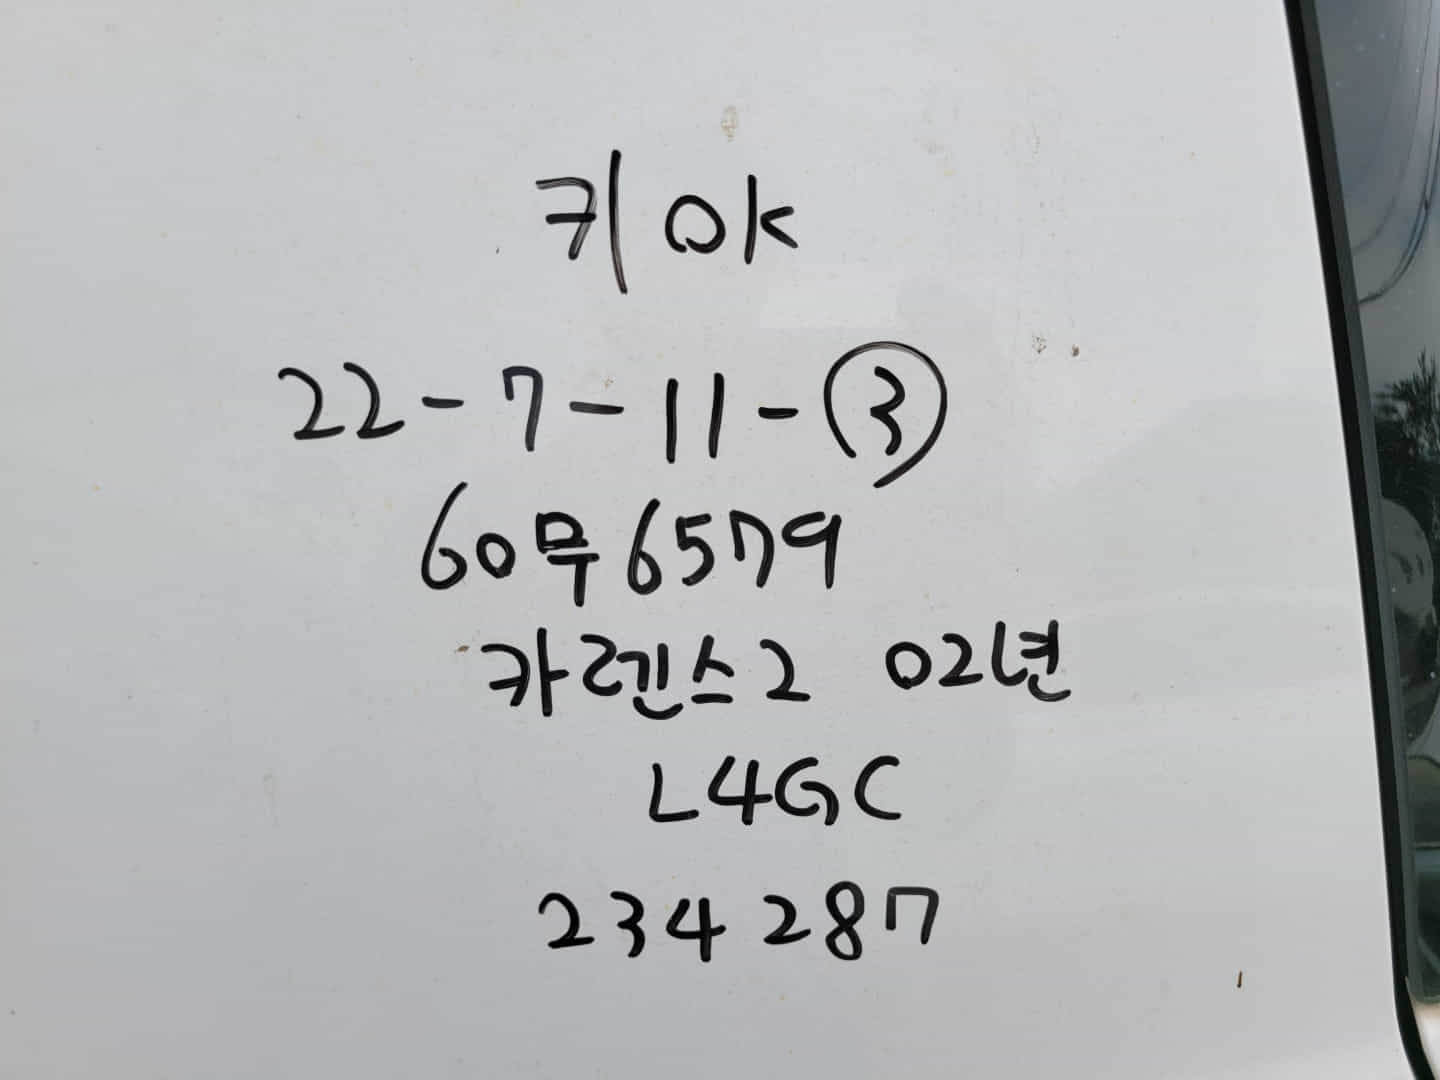 키 OK
22-7-11-③
60무6579
카렌스2 02년
L4GC
234287